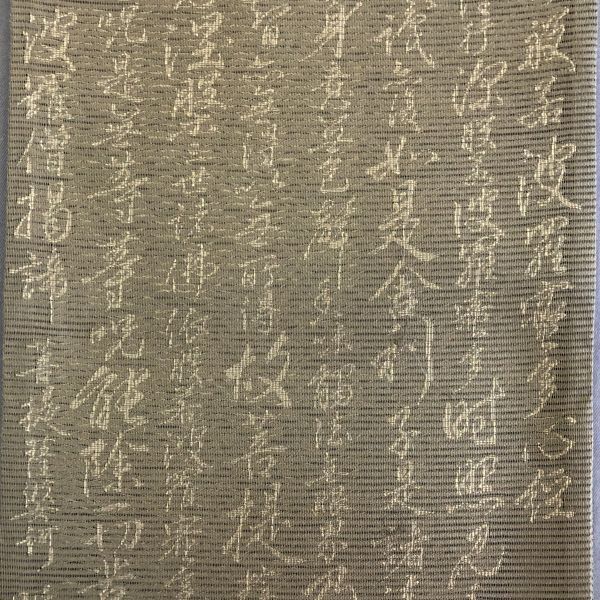 般若波羅蜜多心経
行深般若波羅蜜多時照見
識亦復如是舍利子是諸
身意無色聲香味觸法無眼界
智亦無得以無所得故菩提
涅槃三世諸佛依般若波羅蜜
呪是無等等呪能除一切苦
波羅僧揭諦 菩提薩婆訶